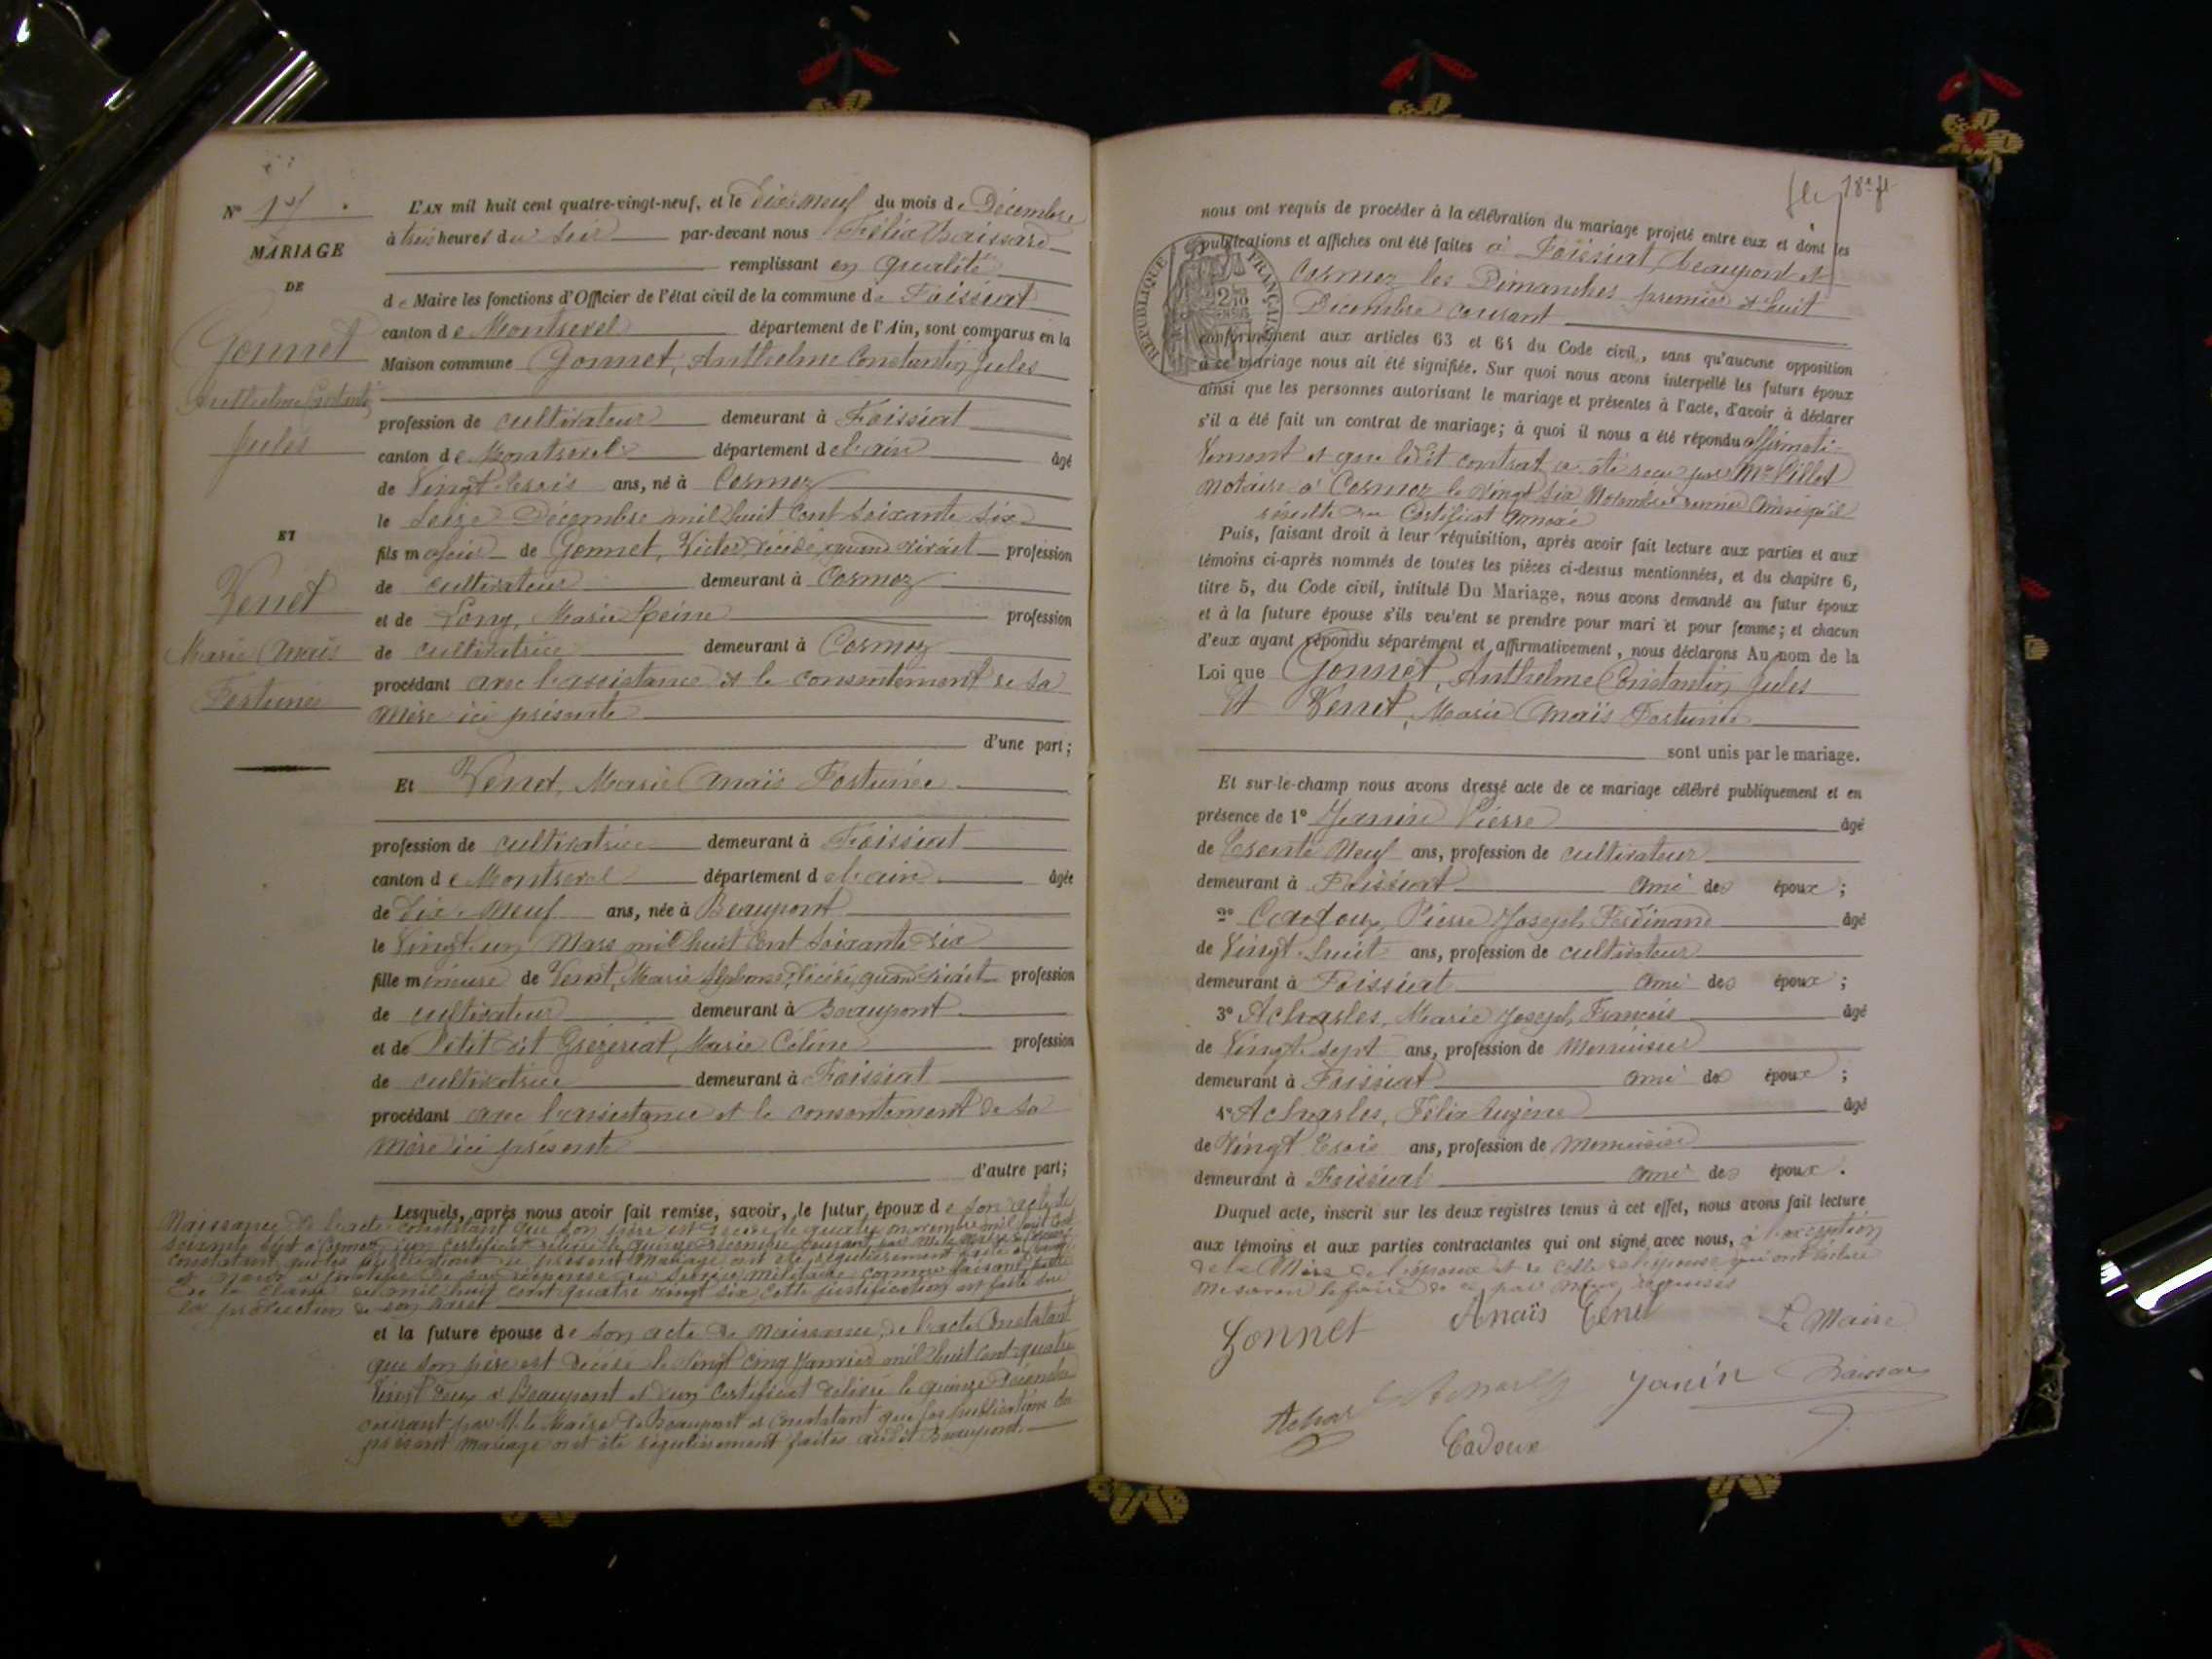 N° 17
MARIAGE
DE
Gonnet
Anthelme Constantin
Jules
ET
Venet
Marie Anaïs
Fortunée
L'AN mil huit cent quatre-vingt-neuf, et le Dix-neuf du mois de Décembre
à trois heures du soir par-devant nous Félix Baissard
remplissant en qualité
de Maire les fonctions d'Officier de l'état civil de la commune de Foissiat
canton de Montrevel département de l'Ain, sont comparus en la
Maison commune Gonnet, Anthelme Constantin Jules
profession de cultivateur demeurant à Foissiat
canton de Montrevel département de l'ain âgé
de Vingt trois ans, né à Cormoz
le Seize Décembre mil huit Cent Soixante Six
fils majeur de Gonnet, Victor, décédé, quand vivait profession
de cultivateur demeurant à Cormoz
et de Pony, Marie profession
de cultivatrice demeurant à Cormoz
procédant avec l'assistance et le consentement de sa
mère ici présente
d'une part;
Et Venet, Marie Anaïs Fortunée
profession de cultivatrice demeurant à Foissiat
canton de Montrevel département de l'ain âgée
de Dix-Neuf ans, née à Beaupont
le Vingt un Mars mil huit Cent Soixante dix
fille mineure de Venet, Marie Alphonse, décédé, quand vivait profession
de cultivateur demeurant à Beaupont
et de Petit dit Grézériat, Marie Céline profession
de cultivatrice demeurant à Foissiat
procédant avec l'assistance et le consentement de sa
mère ici présente
d'autre part;
Lesquels, après nous avoir fait remise, savoir, le futur époux de son acte de
Naissance de l'acte constatant que son père est décédé le quatre novembre mil huit Cent
soixante sept à Cormoz, d'un certificat délivré le quinze décembre courant par M. le Maire de Cormoz
constatant que les publications du présent mariage ont été régulièrement faites
service militaire comme faisant partie
de la classe de mil huit cent quatre vingt six, cette justification est faite sur
la production de son livret
et la future épouse de son acte de Naissance, de l'acte Constatant
que son père est décédé le Vingt Cinq Janvier mil huit Cent quatre
Vingt deux à Beaupont et d'un Certificat délivré le quinze Décembre
courant par M. le Maire de Beaupont et Constatant que les publications du
présent Mariage ont été régulièrement faites audit Beaupont.
18e f
nous ont requis de procéder à la célébration du mariage projeté entre eux et dont les
publications et affiches ont été faites à Foissiat, Beaupont et
Cormoz les Dimanches premier et huit
Décembre courant
RÉPUBLIQUE FRANÇAISE
conformément aux articles 63 et 64 du Code civil, sans qu'aucune opposition
à ce mariage nous ait été signifiée. Sur quoi nous avons interpellé les futurs époux
ainsi que les personnes autorisant le mariage et présentes à l'acte, d'avoir à déclarer
s'il a été fait un contrat de mariage; à quoi il nous a été répondu affirmati-
vement et que ledit contrat a été reçu par Me Pillet
notaire à Cormoz le Vingt Six Novembre dernier ainsi qu'il
résulte du Certificat annexé
Puis, faisant droit à leur réquisition, après avoir fait lecture aux parties et aux
témoins ci-après nommés de toutes les pièces ci-dessus mentionnées, et du chapitre 6,
titre 5, du Code civil, intitulé Du Mariage, nous avons demandé au futur époux
et à la future épouse s'ils veulent se prendre pour mari et pour femme; et chacun
d'eux ayant répondu séparément et affirmativement, nous déclarons Au nom de la
Loi que Gonnet, Anthelme Constantin Jules
Et Venet, Marie Anaïs Fortunée
sont unis par le mariage.
Et sur-le-champ nous avons dressé acte de ce mariage célébré publiquement et en
présence de 1° Jeanin Pierre âgé
de Trente Neuf ans, profession de cultivateur
demeurant à Foissiat ami des époux;
2° Cadoux, Pierre Joseph Ferdinand âgé
de Vingt-huit ans, profession de cultivateur
demeurant à Foissiat ami des époux;
3° Acharles, Marie Joseph François âgé
de Vingt-sept ans, profession de Menuisier
demeurant à Foissiat ami des époux;
4° Acharles, Félix Eugène âgé
de Vingt Trois ans, profession de Menuisier
demeurant à Foissiat ami des époux.
Duquel acte, inscrit sur les deux registres tenus à cet effet, nous avons fait lecture
aux témoins et aux parties contractantes qui ont signé avec nous, à l'exception
de la Mère de l'époux et de celle de l'épouse qui ont déclaré
ne savoir le faire de ce par Nous requises
Gonnet Anaïs Venet Le Maire
Janin Baissard
Cadoux